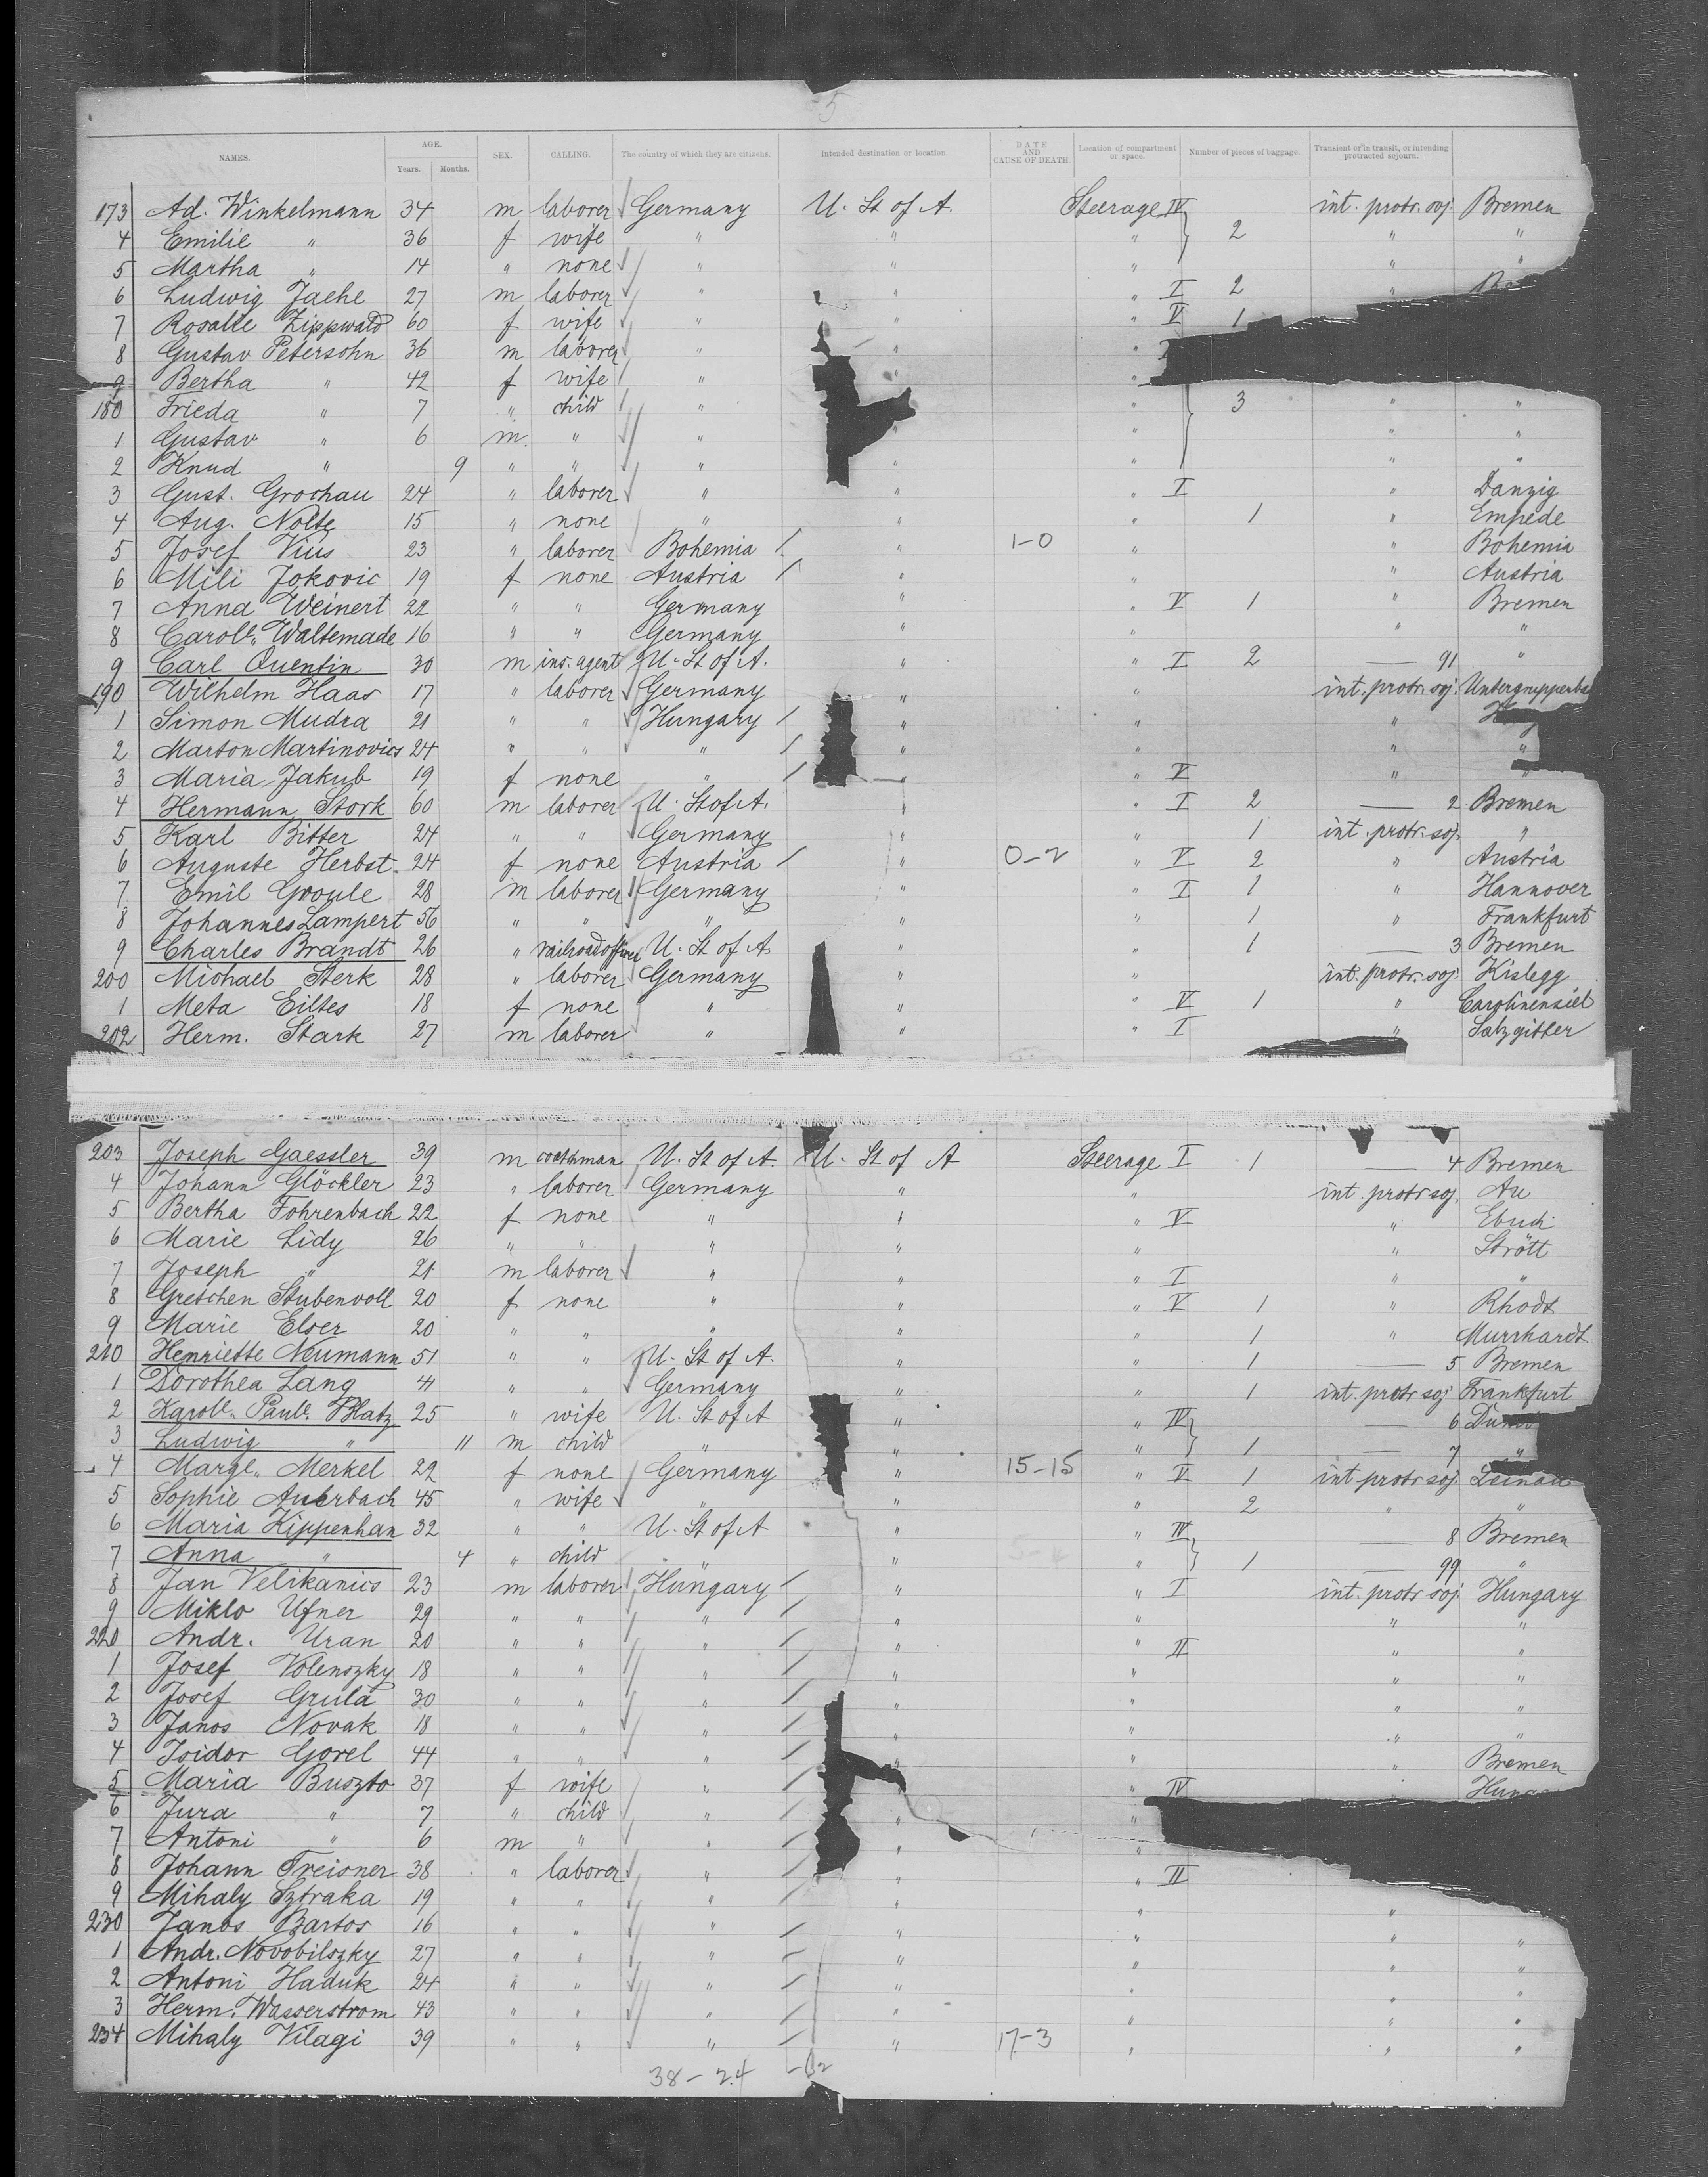 5
NAMES. AGE. Years. Months. SEX. CALLING. The country of which they are citizens. Intended destination or location. DATE AND CAUSE OF DEATH. Location of compartment or space. Number of pieces of baggage. Transient or in transit, or intending protracted sojourn.
173 Ad. Winkelmann 34 m laborer Germany U. St of A. Steerage IV int. protr. soj. Bremen
4 Emilie " 36 f wife " " " 2 " "
5 Martha " 14 " none " " " " "
6 Ludwig Jaehe 27 m laborer " " " I 2 "
7 Rosalie Zippwald 60 f wife " " " V 1
8 Gustav Petersohn 36 m laborer " " "
9 Bertha " 42 f wife " " "
180 Frieda " 7 " child " " 3 " "
1 Gustav " 6 m. " " " " "
2 Knud " 9 " " " " " " "
3 Gust. Grochau 24 " laborer " " " I " Danzig
4 Aug. Nolte 15 " none " " " 1 " Empede
5 Josef Vius 23 " laborer Bohemia " 1-0 " " Bohemia
6 Mili Jokovic 19 f none Austria " " " Austria
7 Anna Weinert 22 " " Germany " " V 1 " Bremen
8 Carole. Waltemade 16 " " Germany " " " "
9 Carl Quentin 30 m ins. agent U. St of A. " " I 2 — 91 "
190 Wilhelm Haas 17 " laborer Germany " " int. protr. soj.
1 Simon Mudra 21 " " Hungary " " "
2 Marton Martinovics 24 " " " " " " "
3 Maria Jakub 19 f none " " " V " "
4 Hermann Stork 60 m laborer U. St of A. " " I 2 — 2 Bremen
5 Karl Bitter 24 " " Germany " " 1 int. protr. soj. "
6 Auguste Herbst. 24 f none Austria " 0-2 " V 2 " Austria
7 Emil Groule 28 m laborer Germany " " I 1 " Hannover
8 Johannes Lampert 56 " " " " " 1 " Frankfurt
9 Charles Brandt 26 " U. St of A " " 1 — 3 Bremen
200 Michael Sterk 28 " laborer Germany " " int. protr. soj. Kislegg
1 Meta Eiltes 18 f none " " " V 1 " Carolinensiel
202 Herm. Stark 27 m laborer " " " I " Salzgitter
203 Joseph Gaessler 39 m coathman U. St of A. U. St of A Steerage I 1 — 4 Bremen
4 Johann Glöckler 23 " laborer Germany " " int. protr soj. Au
5 Bertha Fohrenbach 22 f none " " " V "
6 Marie Lidy 26 " " " " " " Strött
7 Joseph " 21 m laborer " " " I " "
8 Gretchen Stubenvoll 20 f none " " " V 1 " Rhodt
9 Marie Elser 20 " " " " " 1 " Murrhardt
210 Henriette Neumann 51 " " U. St of A. " " 1 — 5 Bremen
1 Dorothea Lang 41 " " Germany " " 1 int. protr soj Frankfurt
2 Karole. Paule. Platz 25 " wife U. St of A " " IV — 6
3 Ludwig " 11 m child " " " 1 — 7 "
4 Marge. Merkel 22 f none Germany " 15-15 " V 1 int protr soj. Leinau
5 Sophie Auerbach 45 " wife " " " 2 " "
6 Maria Kippenhan 32 " " U. St of A " " IV — 8 Bremen
7 Anna " 4 " child " " " 1 — 99 "
8 Jan Velikanics 23 m laborer Hungary " " I int. protr soj. Hungary
9 Miklo Ufner 29 " " " " " " "
220 Andr. Uran 20 " " " " " II " "
1 Josef Volenszky 18 " " " " " " "
2 Josef Grula 30 " " " " " " "
3 Janos Novak 18 " " " " " " "
4 Isidor Gorel 44 " " " " " " Bremen
5 Maria Buszto 37 f wife " " " IV
6 Jura " 7 " child " " "
7 Antoni " 6 m " " " "
8 Johann Treisner 38 " laborer " " " II
9 Mihaly Sztraka 19 " " " " " "
230 Janos Bartos 16 " " " " " " "
1 Andr. Novobilszky 27 " " " " " " "
2 Antoni Haduk 24 " " " " " " "
3 Herm. Wasserstrom 43 " " " " " " "
234 Mihaly Vilagi 39 " " " " 17-3 " " "
38-24